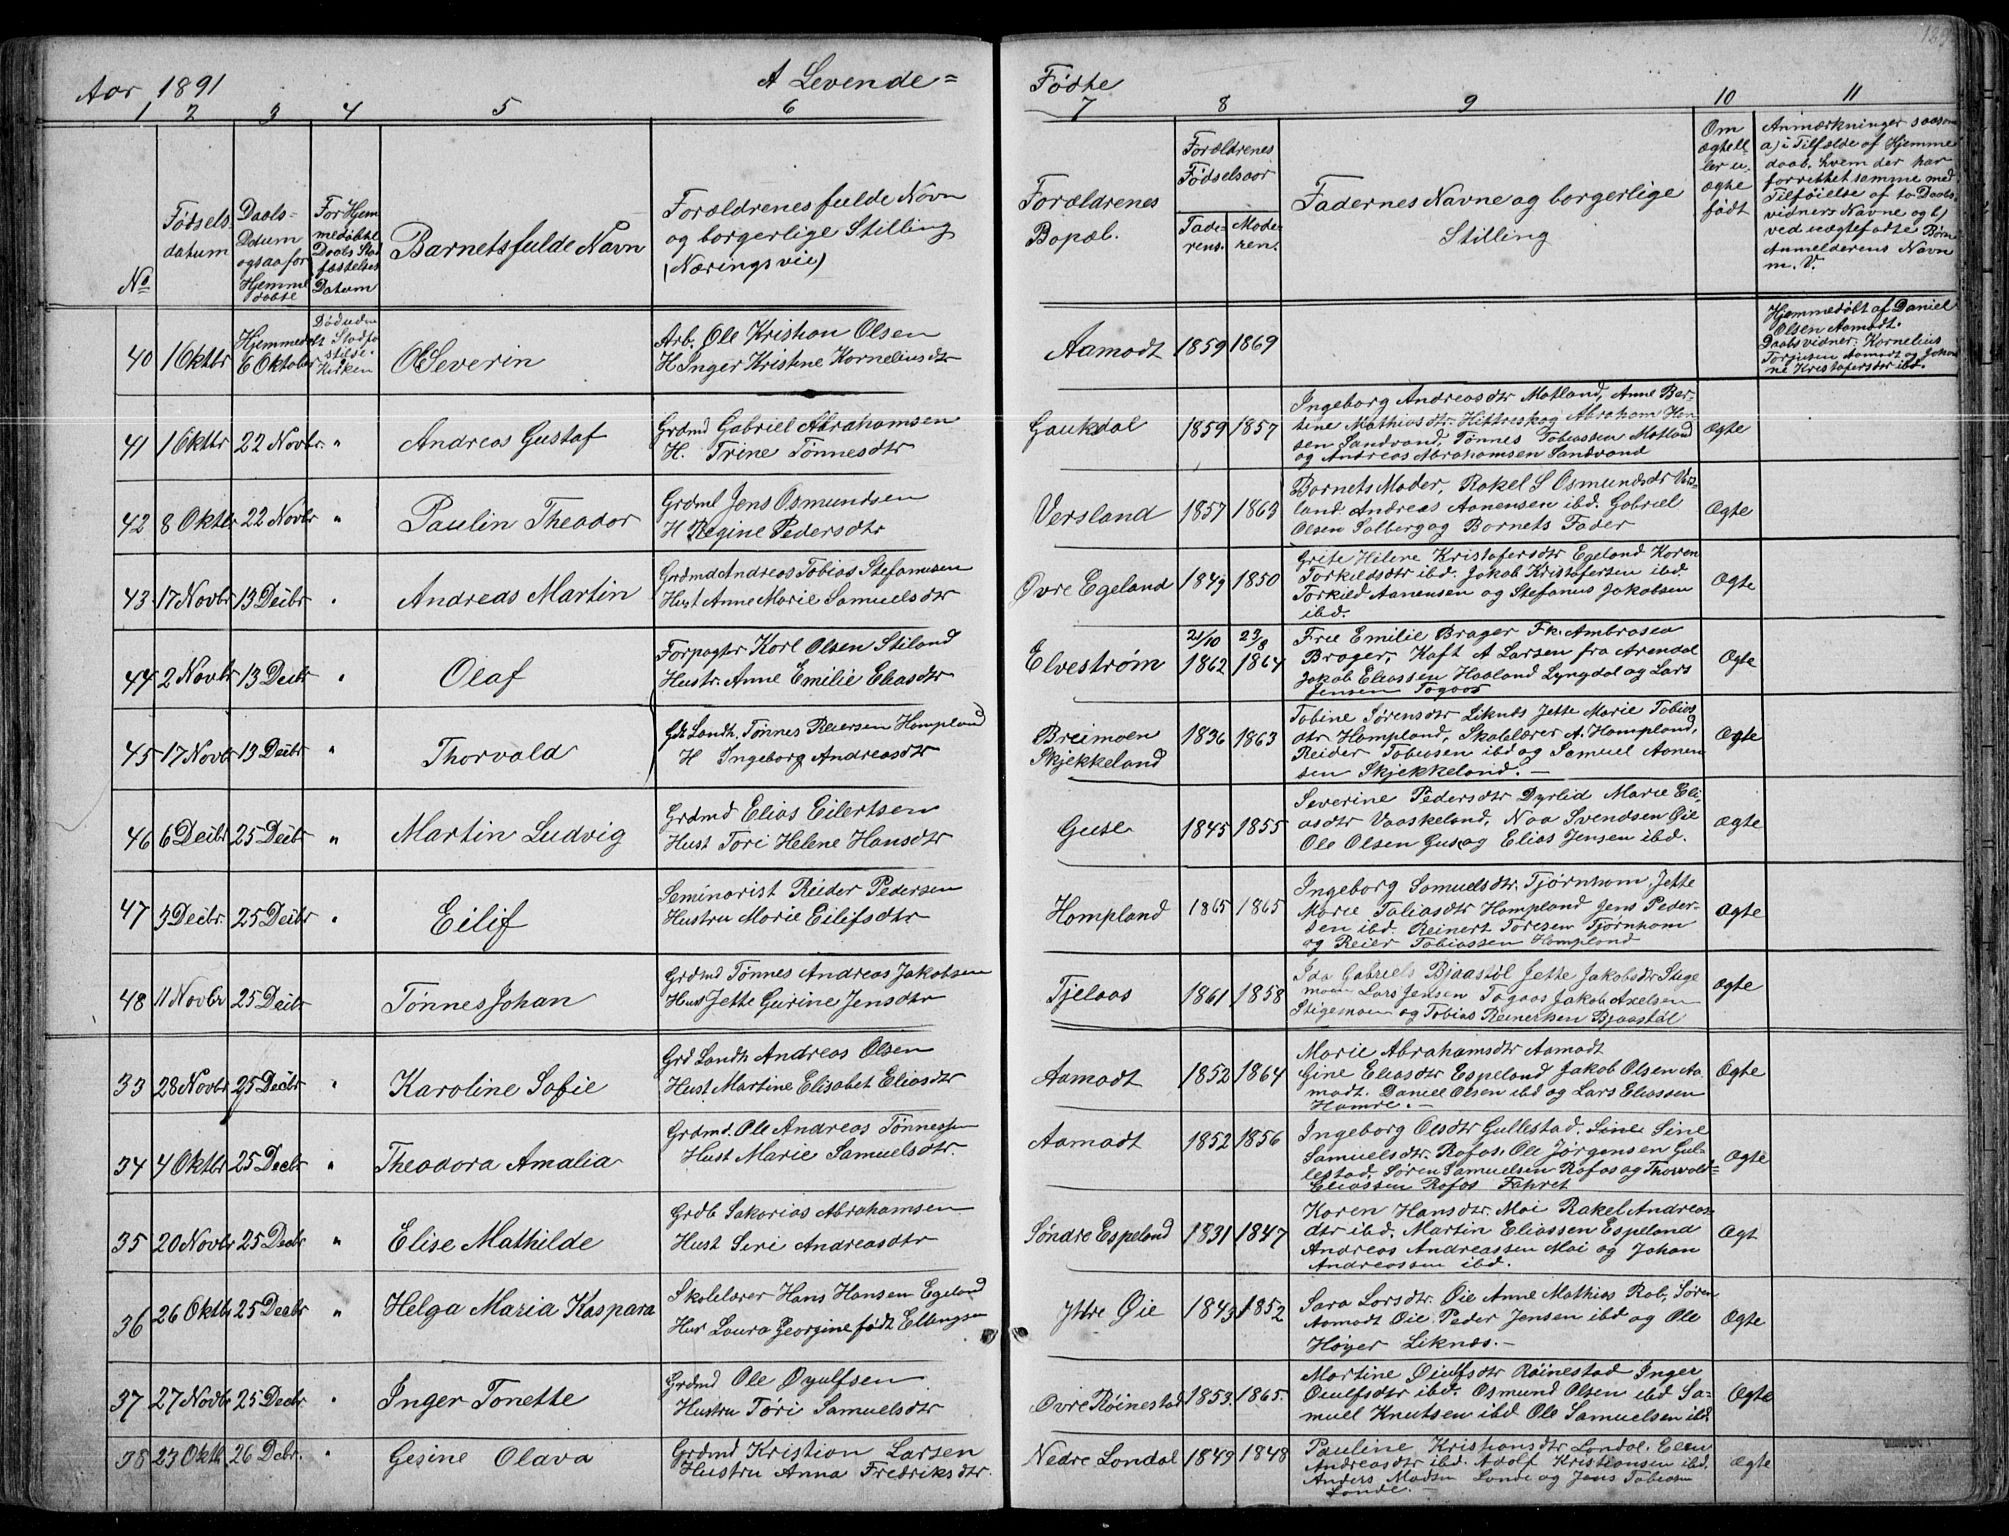 189
Aar 1891
A Levende=
Fødte
1 2 3 4 5 6 7 8 9 10 11
No
Fødsels
datum
Daabs=
Datum
ogsaa for
Hjemme
døbte
For Hjem
medøbte
Daabs Stad
fæstelses
Datum
Barnets fulde Navn
Forældrenes fulde Navn
og borgerlige Stilling
(Næringsvei)
Forældrenes
Bopæl.
Forældrenes
Fødselsaar
Fade-
rens.
Mode-
ren.
Fadernes Navne og borgerlige
Stilling
Om
ægte ell-
ler u-
ægte
født
Anmærkninger saasom
a) i Tilfælde af Hjemme
daab. hvem der har
forrettet samme med
Tilføielse af to Daabs
vidners Navne og b)
ved uægtefødte Børn
Anmelderens Navn
m. V.
40 1 Oktbr Hjemmedøbt
6 Oktober
Død uden
Stadfæ
stelse
Kirken
Ol Severin
Arb. Ole Kristian Olsen
H Inger Kristine Korneliusdtr
Aamodt 1859 1869
Hjemmedøbt af Daniel
Olsen Aamodt.
Daabsvidner. Kornelius
Torjusen Aamodt og Johan
ne Kristofersdtr ibd.
41 1 Oktbr 22 Novbr. " Andreas Gustaf
Grdmd Gabriel Abrahamsen
H. Trine Tønnesdtr
Gaukdal 1859 1857
Ingeborg Andreasdtr Matland, Anne Ber-
tine Mathiasdtr. Hittreskog Abraham Han-
sen Sandvand, Tønnes Tobiassen Matland
og Andreas Abrahamsen Sandvand
Ægte
42 8 Oktbr 22 Novbr " Paulin Theodor
Grdmd Jens Osmundsen
H Regine Pedersdtr
Versland 1857 1863
Barnets Moder, Rakel S Osmundsdtr Vers-
land. Andreas Aanensen ibd. Gabriel
Olsen Salberg og Barnets Fader
Ægte
43 17 Novbr 13 Decbr " Andreas Martin
Grdmd Andreas Tobias Stefanusen
Hust Anne Marie Samuelsdtr
Øvre Egeland 1849 1850
Grite Helene Kristofersdtr Egeland Karen
Torkildsdtr ibd. Jakob Kristofersen ibd
Torkild Aanensen og Stefanus Jakobsen
ibd.
Ægte
44 2 Novbr 13 Decbr " Olaf
Forpagtr Karl Olsen Stiland
Hustr. Anne Emilie Eliasdtr
Elvestrøm 21/10 1862 23/8 1864
Frie Emilie Brager Fk. Ambrosia
Brager, Kaft A Larsen fra Arendal
Jakob Eliassen Haaland Lyngdal og Lars
Jensen Togaas
Ægte
45 17 Novbr 13 Decbr " Thorvald
Gdr Landh. Tønnes Reiersen Hompland
H Ingeborg Andreasdtr
Breimoen
Skjekkeland
1836 1863
Tobine Sørensdtr Liknes Jette Marie Tobias
dtr Hompland, Skolelærer A. Hompland,
Reider Tobiasen ibd og Samuel Aanen
sen Skjekkeland. —
Ægte
46 6 Decbr 25 Decbr " Martin Ludvig
Grdmd Elias Eilertsen
Hust Tori Helene Hansdtr
Guse 1845 1855
Severine Pedersdtr Dyrlid Marie Eli-
asdtr Vaaskeland, Naa Svendsen Øie
Ole Olsen Guse og Elias Jensen ibd.
Ægte
47 5 Decbr. 25 Decbr " Eilif
Seminarist Reider Pedersen
Hustru Marie Eilifsdtr
Hompland 1865 1865
Ingeborg Samuelsdtr. Tjørnhom, Jette
Marie Tobiasdtr Hompland Jens Peder-
sen ibd. Reinert Toresen Tjørnhom
og Reier Tobiassen Hompland
Ægte
48 11 Novbr 25 Decbr Tønnes Johan
Grdmd Tønnes Andreas Jakobsen
Hust Jette Gurine Jensdtr
Tjelaas 1861 1858
Ida Gabriels Bjaastøl Jette Jakobsdtr Stige
moen Lars Jensen Togaas Jakob Axelsen
Stigemoen og Tobias Reinertsen Bjaastøl
Ægte
33 28 Novbr 25 Decbr " Karoline Sofie
Grd Landh Andreas Olsen
Hust. Martine Elisabet Eliasdtr
Aamodt 1852 1864
Marie Abrahamsdtr Aamodt
Gine Eliasdtr Espeland Jakob Olsen Aa
modt. Daniel Olsen ibd og Lars Eliassen
Hamre. —
Ægte
34 4 Oktbr 25 Decbr " Theodora Amalia
Grdmd. Ole Andreas Tønnessen
Hust Marie Samuelsdtr.
Aamodt 1852 1856
Ingeborg Olsdtr Gullestad. Sine Sine
Samuelsdtr. Rafos. Ole Jørgensen Gul-
lestad, Søren Samuelsen Rafos og Thorvold=
Eliassen Rafos Fahret
Ægte
35 20 Novbr 25 Decbr " Elise Mathilde
Grdb Sakarias Abrahamsen
Hust Seri Andreasdtr
Søndre Espeland 1831 1847
Karen Hansdtr. Moi Rakel Andreas-
dtr ibd. Martin Eliassen Espeland
Andreas Andreassen Moi og Johan
Andreassen ibd.
Ægt
36 26 Oktbr 25 Decbr " Helga Maria Kaspara
Skolelærer Hans Hansen Egeland
Hus Laura Georgine født Ellingsen
Ytre Øie 1843 1852
Sara Larsdtr. Øie Anne Mathias Rob, Søren
Aamodt Øie Peder Jensen ibd og Ole
Høyer Liknes. —
Ægte
37 27 Novbr 25 Decbr " Inger Tonette
Grdmd Ole Øyulfsen
Hustru Tori Samuelsdtr
Øvre Røinestad 1853. 1865.
Martine Øiulfsdtr Røinestad Inger
Øiulfsdtr ibd. Osmund Olsen ibd Sa-
muel Knutsen ibd Ole Samuelsen ibd
Ægte
38 23 Oktb 26 Debr. " Gesine Olava
Grdmd Kristian Larsen
Hustru Anna Fredriksdtr.
Nedre Londal 1849 1848
Pauline Kristiansdtr Londal. Elen
Andreasdtr ibd. Adolf Kristiansen ibd.
Anders Madsen Londe og Jens Tobiasen
Londe. —
Ægte